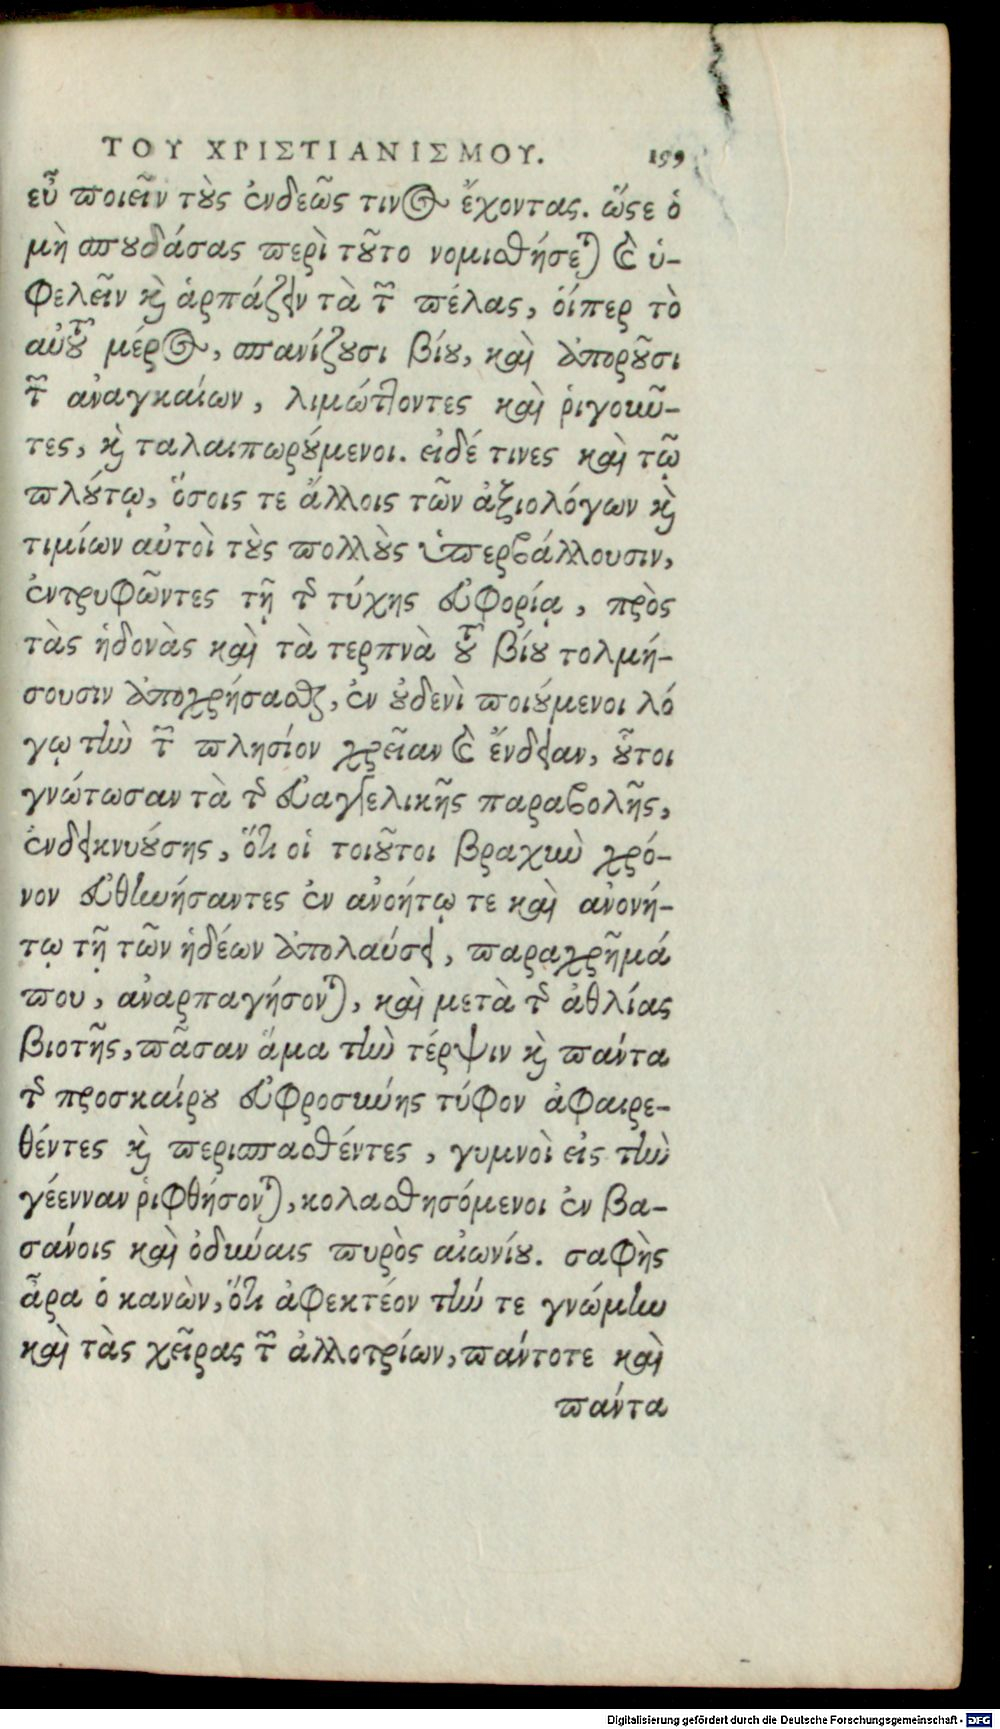 ΤΟΥ ΧΡΙΣΤΙΑΝΙΣΜΟΥ. 159
εὖ ποιεῖν τοὺς ἐνδεῶς τινος ἔχοντας. ὥστε ὁ
μὴ σπουδάσας περὶ τοῦτο νομισθήσεται καὶ ὑ-
φελεῖν καὶ ἁρπάζειν τὰ τῶν πέλας, οἵπερ τὸ
αὐτοῦ μέρος, σπανίζουσι βίου, καὶ ἀποροῦσι
τῶν ἀναγκαίων, λιμώττοντες καὶ ῥιγοῦν-
τες, καὶ ταλαιπωρούμενοι. εἰδέ τινες καὶ τῷ
πλούτῳ, ὅσοις τε ἄλλοις τῶν ἀξιολόγων καὶ
τιμίων αὐτοὶ τοὺς πολλοὺς ὑπερβάλλουσιν,
ἐντρυφῶντες τῇ τῆς τύχης εὐφορίᾳ, πρὸς
τὰς ἡδονὰς καὶ τὰ τερπνὰ τοῦ βίου τολμή-
σουσιν ἀποχρήσασθαι, ἐν οὐδενὶ ποιούμενοι λό
γῳ τὴν τῶν πλησίον χρεῖαν καὶ ἔνδειαν, οὗτοι
γνώτωσαν τὰ τῆς εὐαγγελικῆς παραβολῆς,
ἐνδεικνυούσης, ὅτι οἱ τοιοῦτοι βραχὺν χρό-
νον εὐθηνήσαντες ἐν ἀνοήτῳ τε καὶ ἀνονή-
τῳ τῇ τῶν ἡδέων ἀπολαύσει, παραχρῆμά
που, ἀναρπαγήσονται, καὶ μετὰ τῆς ἀθλίας
βιοτῆς, πᾶσαν ἅμα τὴν τέρψιν καὶ πάντα
τῆς προσκαίρου εὐφροσύνης τύφον ἀφαιρε-
θέντες καὶ περισπασθέντες, γυμνοὶ εἰς τὴν
γέενναν ῥιφθήσονται, κολασθησόμενοι ἐν βα-
σάνοις καὶ ὀδύναις πυρὸς αἰωνίου. σαφὴς
ἆρα ὁ κανὼν, ὅτι ἀφεκτέον τήν τε γνώμην
καὶ τὰς χεῖρας τῶν ἀλλοτρίων, πάντοτε καὶ
πάντα
Digitalisierung gefördert durch die Deutsche Forschungsgemeinschaft - DFG